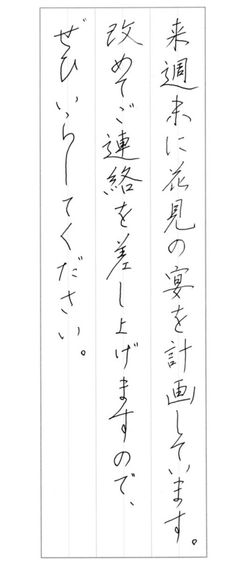 来週末に花見の宴を計画しています。
改めてご連絡を差し上げますので、
ぜひいらしてください。